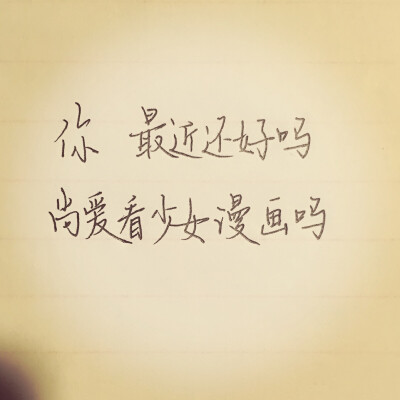 你 最近还好吗
尚爱看少女漫画吗